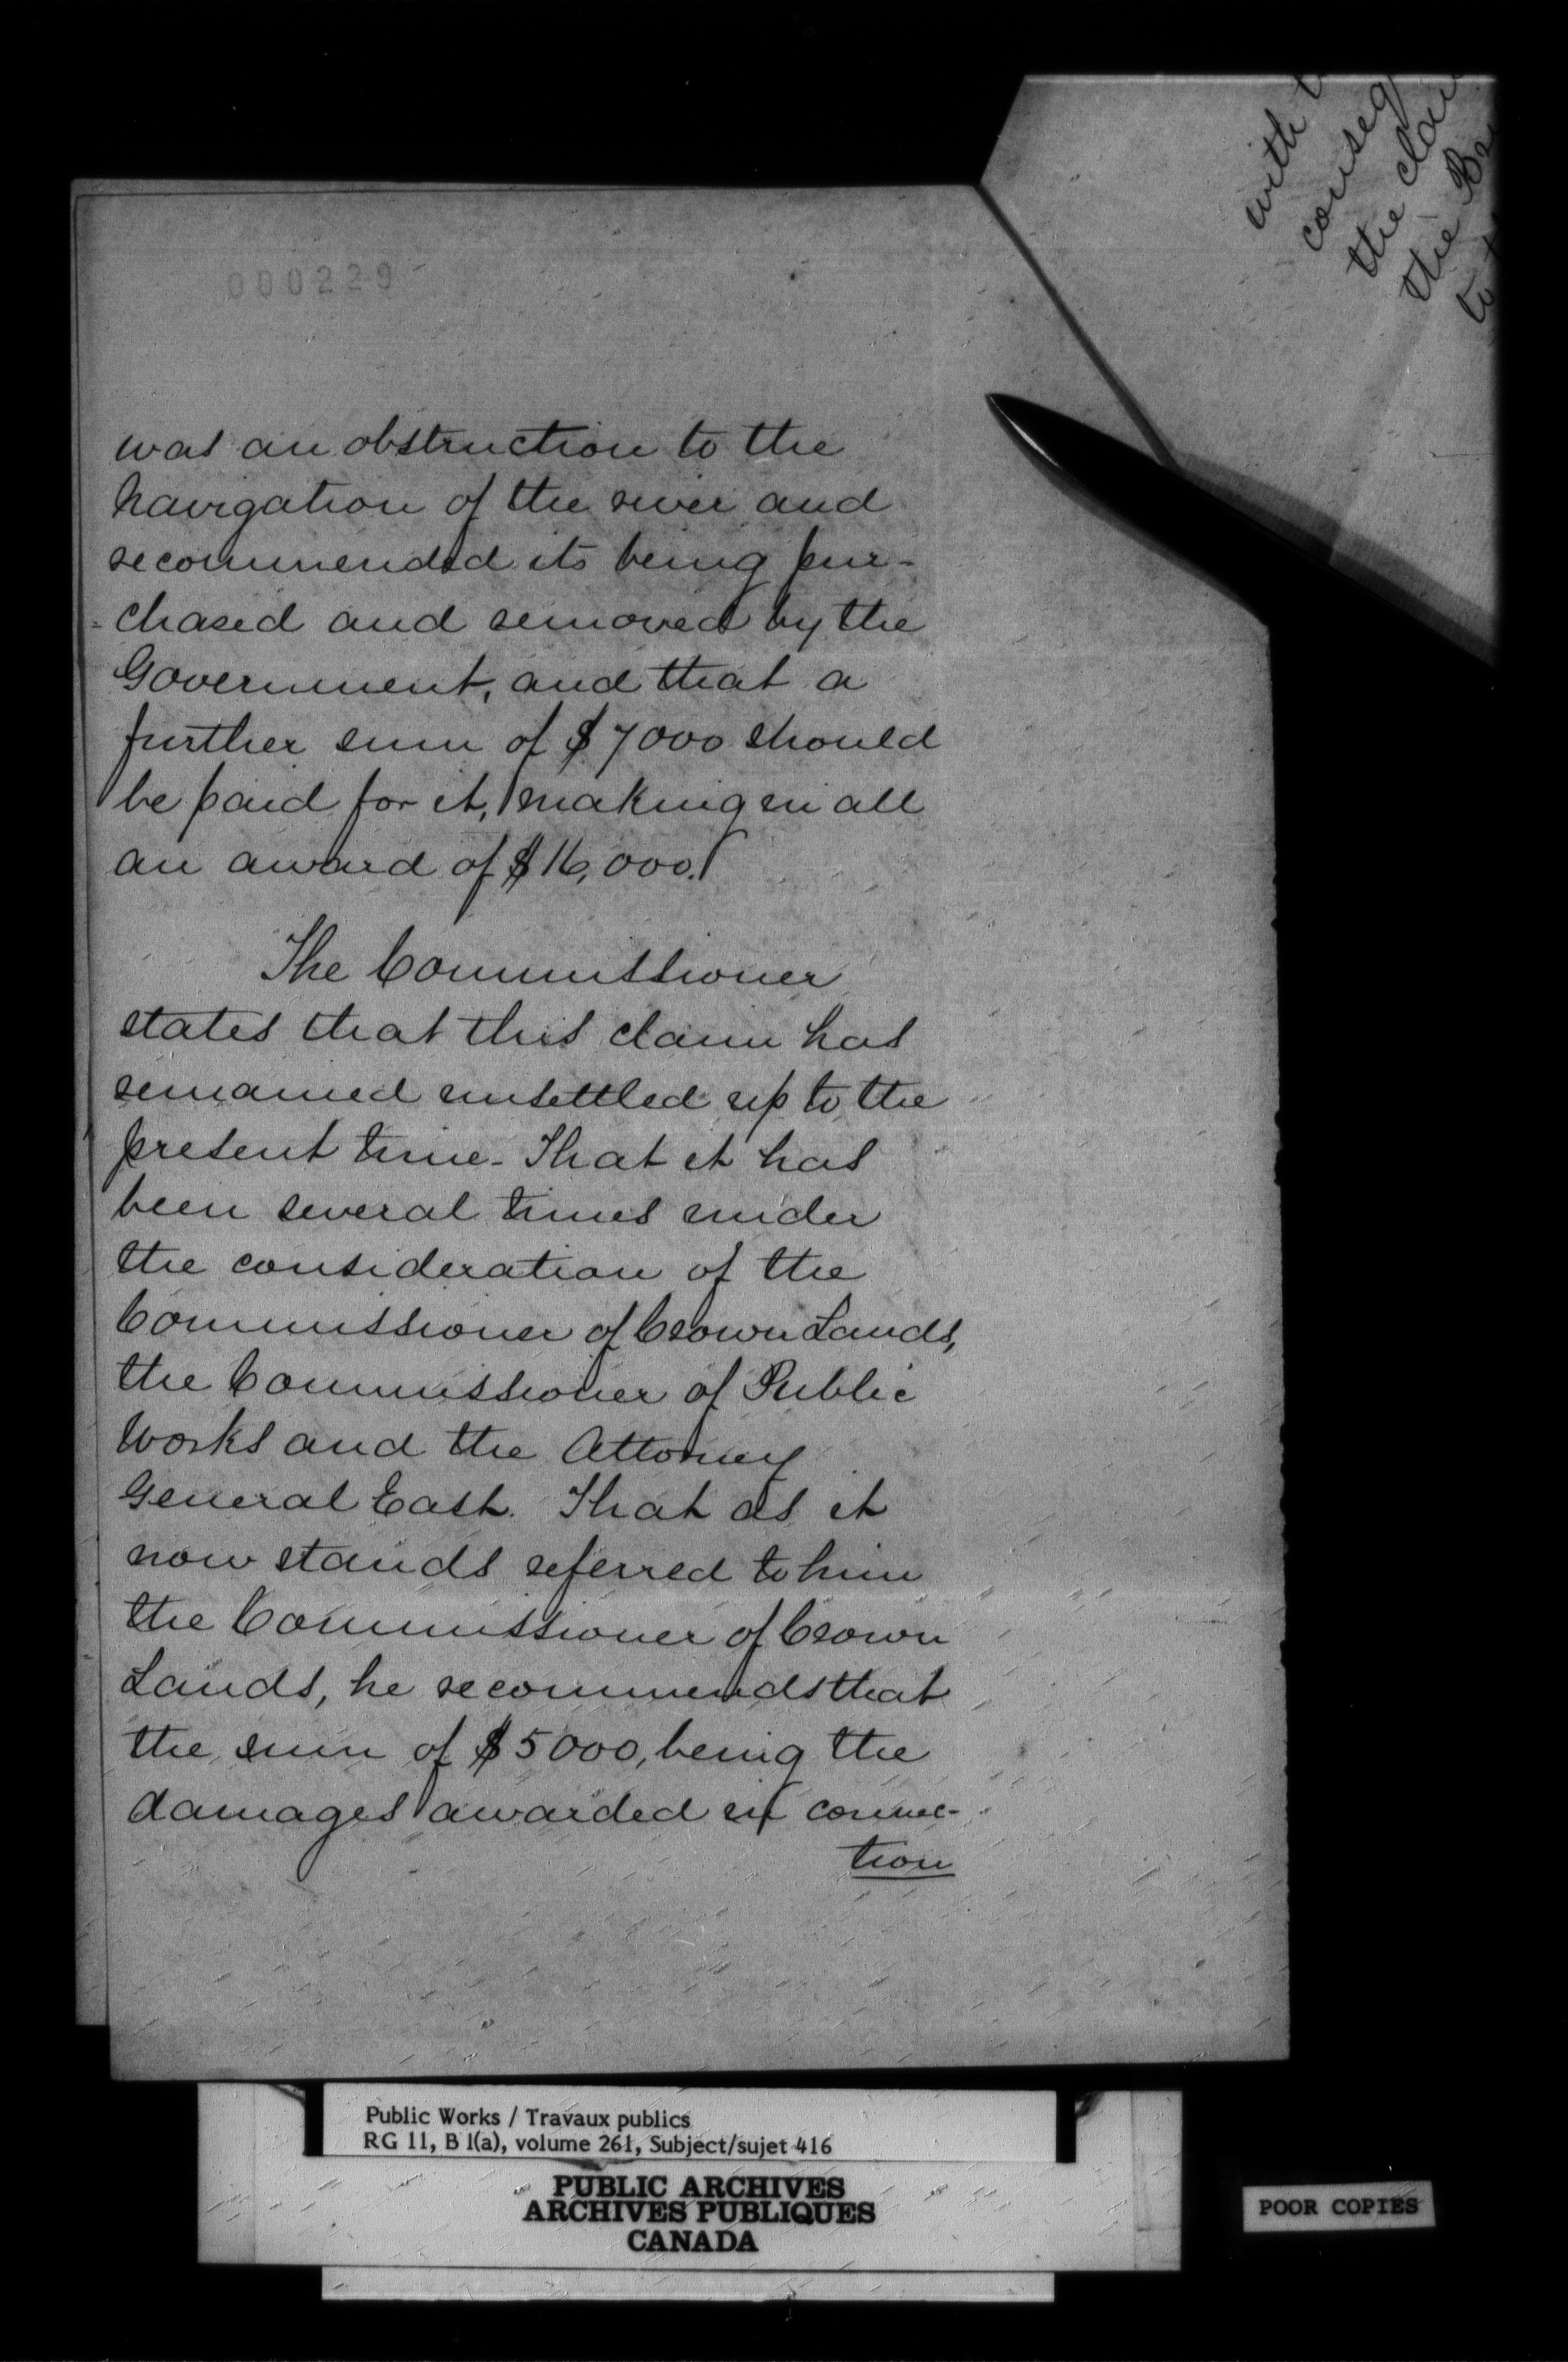 000229
was an obstruction to the
navigation of the river and
recommended its being pur-
=chased and removed by the
Government, and that a
further sum of $7000 should
be paid for it, making in all
an award of $16,000.
The Commissioner
states that this claim has
remained unsettled up to the
present time - That it has
been several times under
the consideration of the
Commissioner of Crown Lands,
the Commissioner of Public
Works and the Attorney
General East. That as it
now stands referred to him
the Commissioner of Crown
Lands, he recommends that
the sum of $5000, being the
damages awarded in connec-
tion
with
the
the
Public Works / Travaux publics
RG 11, B 1(a), volume 261, Subject/sujet 416
PUBLIC ARCHIVES
ARCHIVES PUBLIQUES
CANADA
POOR COPIES